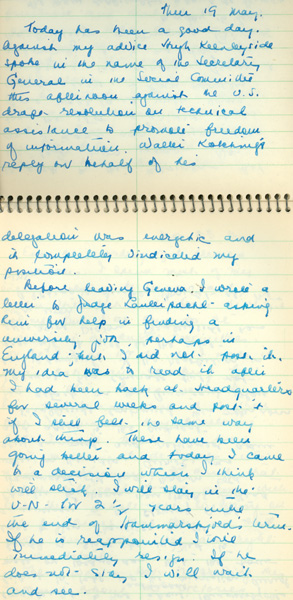 Thur 19 May.
Today has been a good day.
Against my advice Hugh Keenleyside
spoke in the name of the Secretary
General in the Social Committee
this afternoon against the U.S.
draft resolution on technical
assistance to promote freedom
of information. Walter Kotschnig's
reply on behalf of his
delegation was energetic and
it completely vindicated my
position.
Before leaving Geneva, I wrote a
letter to Judge Lauterpacht asking
him for help in finding a
university job, perhaps in
England, but I did not post it.
My idea was to read it after
I had been back at Headquarters
for several weeks and post it
if I still felt the same way
about things. These have been
going better and today I came
to a decision which I think
will stick. I will stay in the
U.N. for 2 1/2 years until
the end of Hammarskjold's term.
If he is reappointed I will
immediately resign. If he
does not stay I will wait
and see.